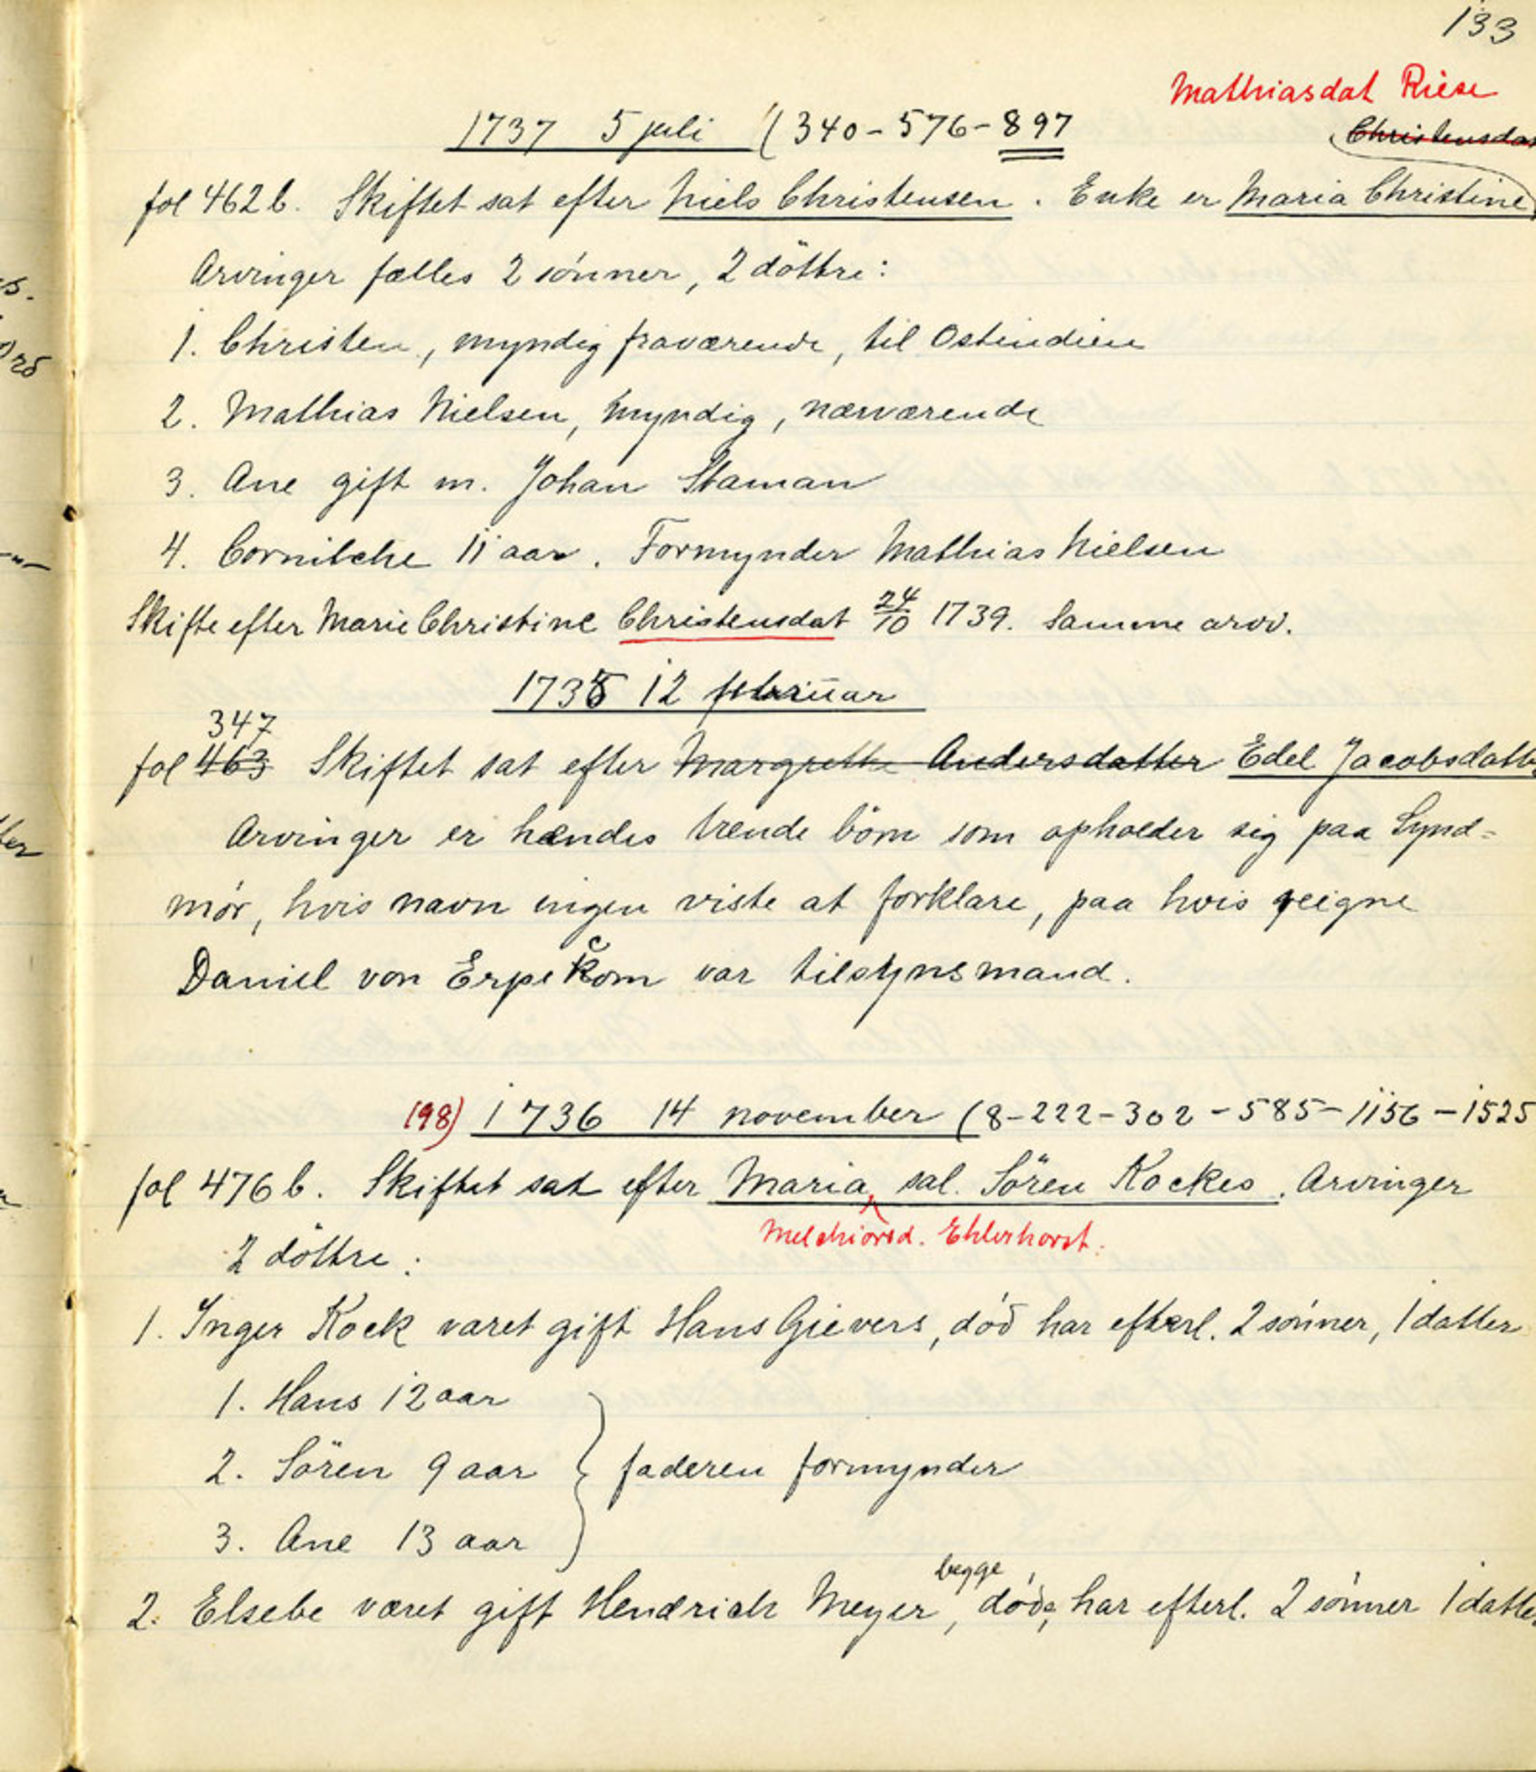 133
Mathiasdat Riese
1737 5 juli (340-576-897
Christensdat
fol 462 b. Skiftet sat efter Niels Christensen. Enke er Maria Christine
Arvinger fælles 2 sønner, 2 döttre:
1. Christen, myndig fraværende, til Ostindien
2. Mathias Nielsen, myndig, nærværende
3. Ane gift m. Johan Staman
4. Cornilche 11 aar. Formynder Mathias Nielsen
Skifte efter Marie Christine Christensdat 24/10 1739. Samme arv.
1735 12 februar
347
fol 463 Skiftet sat efter Margrethe Andersdatter Edel Jacobsdatter
Arvinger er hændes trende börn som opholder sig paa Synd=
mør, hvis navn ingen viste at forklare, paa hvis veigne
Daniel von Erpecom var tilsynsmand.
(98) 1736 14 november (8-222-302-585-1156-1525
fol 476 b. Skiftet sat efter Maria, sal. Sören Kockes. Arvinger
Melchiorsd. Ehlerhorst.
2 döttre:
1. Inger Kock været gift Hans Gievers, död har efterl. 2 sønner, 1 datter
1. Hans 12 aar
2. Sören 9 aar } faderen formynder
3. Ane 13 aar
begge
2. Elsebe været gift Hendrich Meyer, døde, har efterl. 2 sønner 1 datter